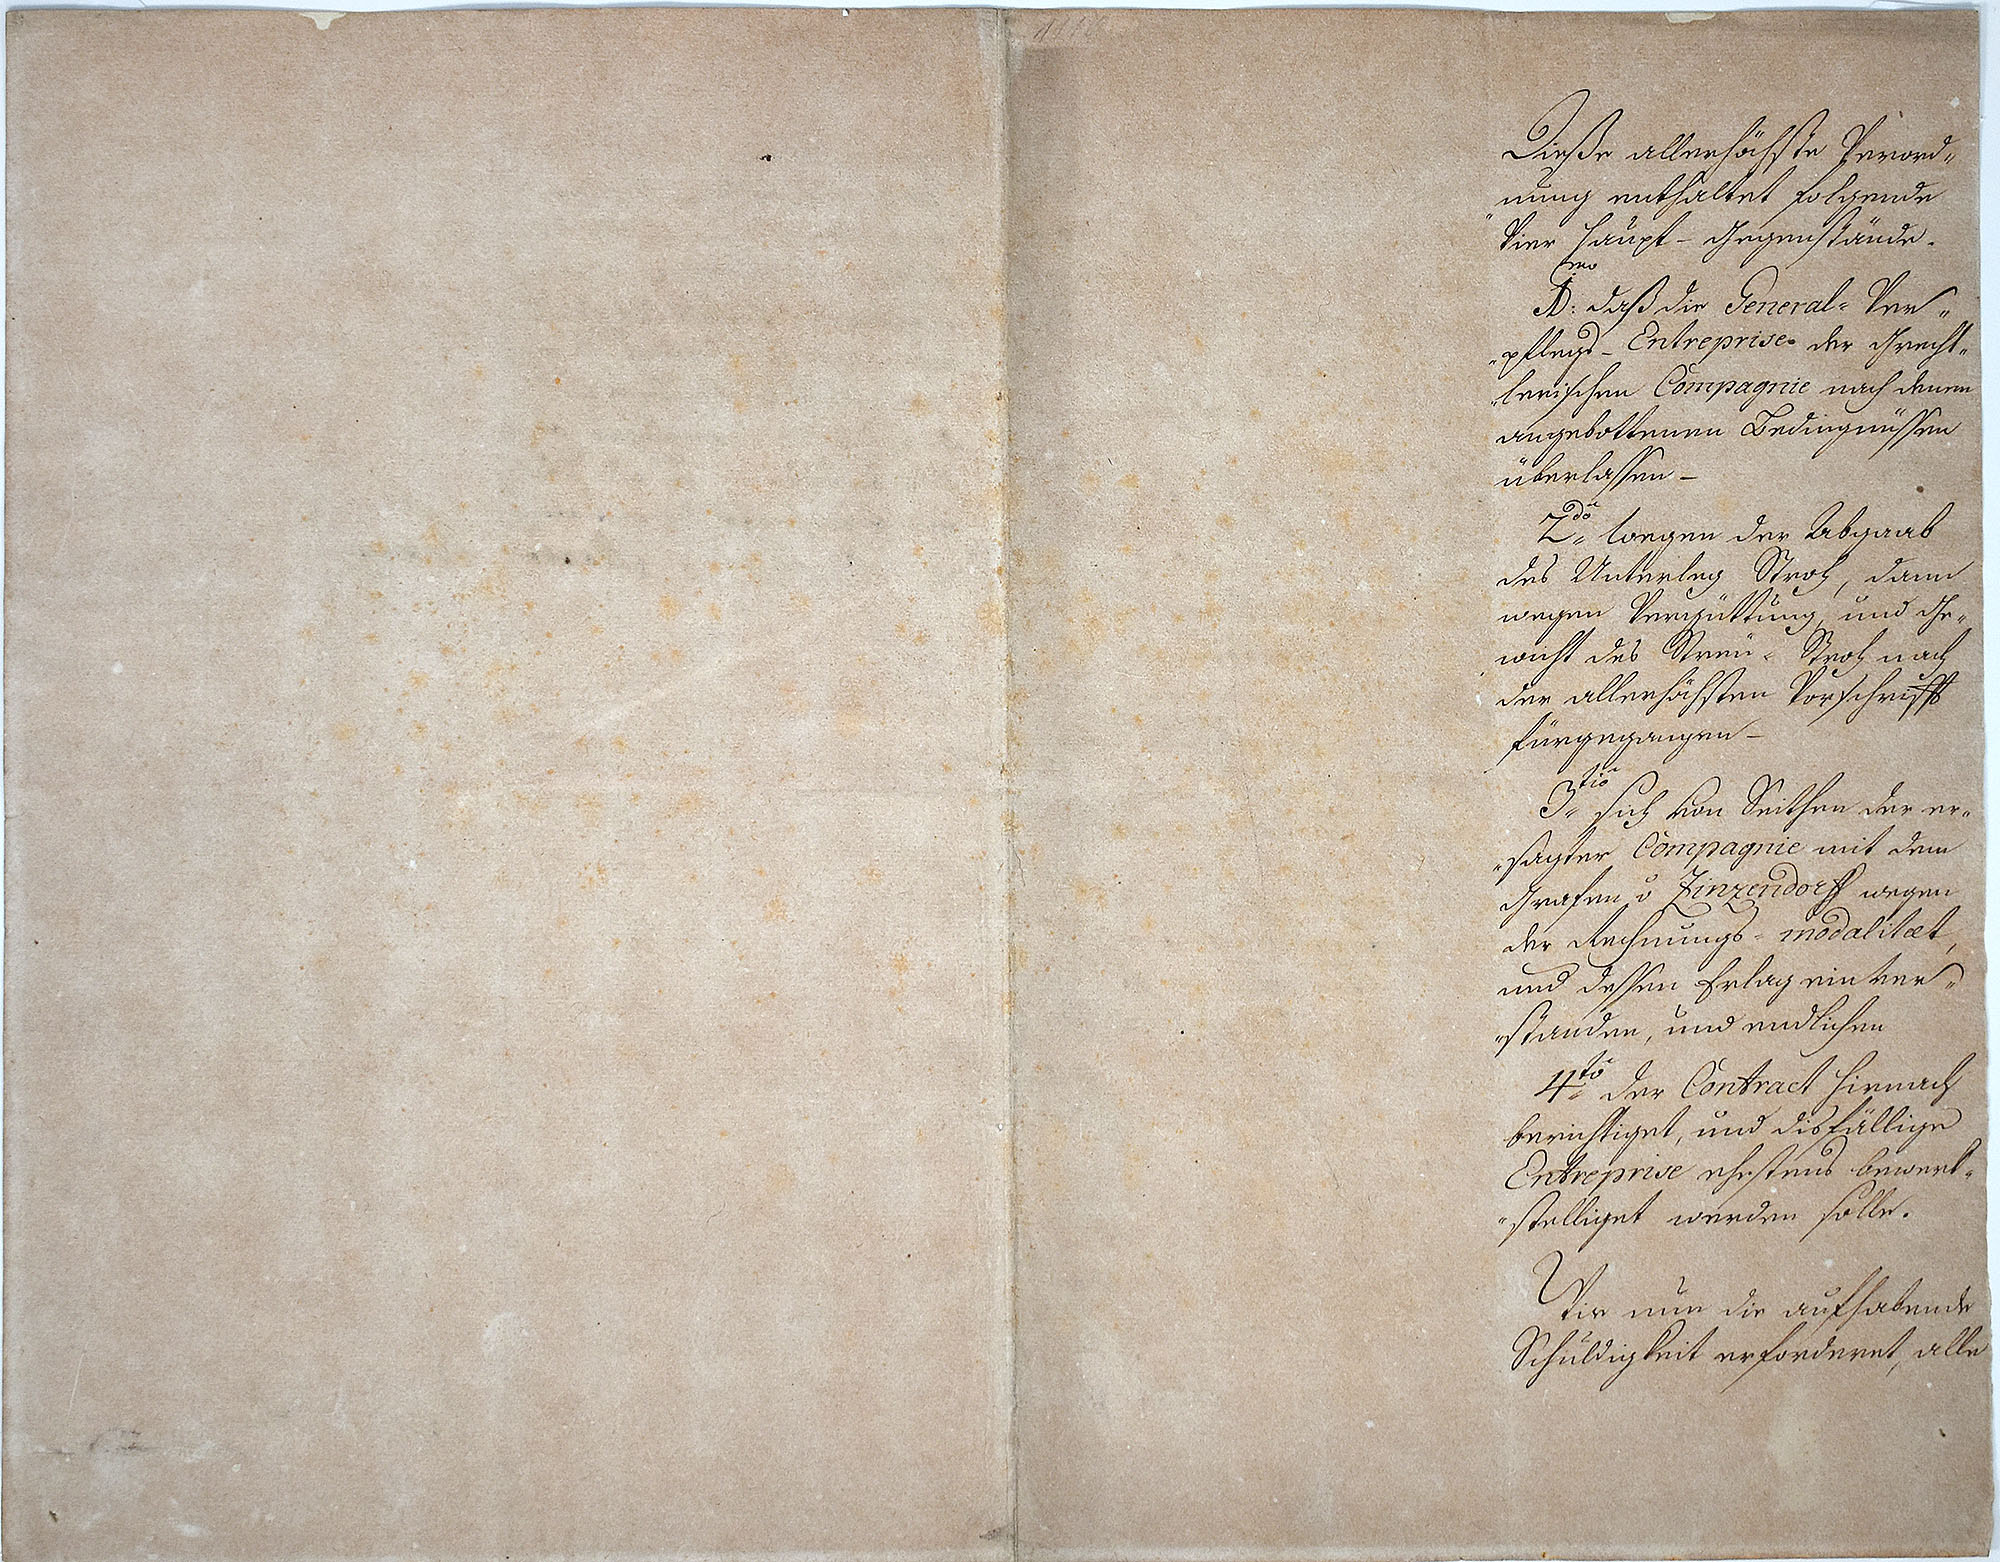 Dieße allerhöchste Verord„
nung enthaltet folgende
Vier Haupt- Gegenstände.
daß die General- Ver„
„pflegs- Entreprise der Grecht„
„lerischen Compagnie nach denen
angebottenen Bedingnüssen
überlassen –
2do wegen der Abgaab
des Unterleg Stroh, dann
wegen Vergüttung, und Ge„
wicht des Streu- Stroh nach
der allerhöchsten Vorschrifft
fürgegangen –
3tio sich von Seithen der er„
„sagter Compagnie mit dem
Grafen v Zinzendorff wegen
der Rechnungs- modalitæt,
und dessen Erlag einver„
„standen, und endlichen
4to der Contract hiernach
berichtiget, und disfällige
Entreprise ehestens bewerk„
„stelliget werden solle.
Wie nun die aufhabende
Schuldigkeit erforderet, alle